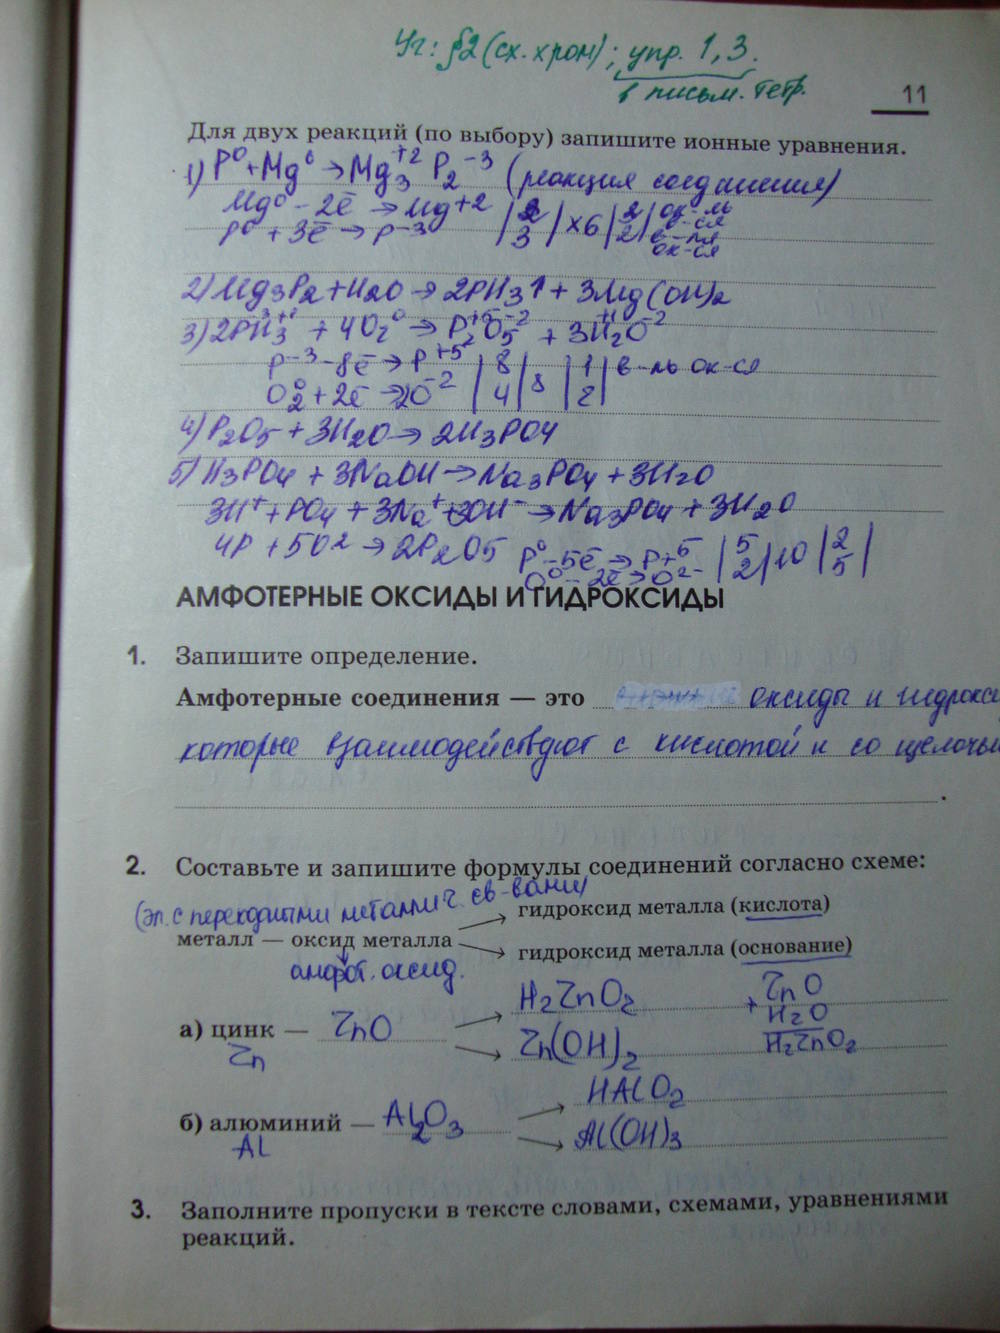 Уч: §2 (сх. хром); упр. 1, 3.
в письм. тетр.
11
Для двух реакций (по выбору) запишите ионные уравнения.
1) P⁰ + Mg⁰ → Mg₃⁺² P₂⁻³ (реакция соединения)
Mg⁰ - 2ē → Mg⁺² | 2 | ×6 | 2 | ок-ль
P⁰ + 3ē → P⁻³ | 3 | | 2 | ок-ся
2) Mg₃P₂ + H₂O → 2PH₃↑ + 3Mg(OH)₂
3) 2P⁻³H₃⁺¹ + 4O₂⁰ → P₂⁺⁵O₅⁻² + 3H₂⁺¹O⁻²
P⁻³ - 8ē → P⁺⁵ | 8 | 8 | 1 | в-ль ок-ся
O₂⁰ + 2ē → 2O⁻² | 4 | | 2 |
4) P₂O₅ + 3H₂O → 2H₃PO₄
5) H₃PO₄ + 3NaOH → Na₃PO₄ + 3H₂O
3H⁺ + PO₄ + 3Na⁺ + 3OH⁻ → Na₃PO₄ + 3H₂O
4P + 5O₂ → 2P₂O₅ P⁰ - 5ē → P⁺⁵ | 5 | 10 | 2 |
O⁰ - 2ē → O²⁻ | 2 | | 5 |
АМФОТЕРНЫЕ ОКСИДЫ И ГИДРОКСИДЫ
1. Запишите определение.
Амфотерные соединения — это оксиды и гидрокси
которые взаимодействуют с кислотой и со щелочью
2. Составьте и запишите формулы соединений согласно схеме:
(эл. с переходными металлич. св-вами)
гидроксид металла (кислота)
металл — оксид металла
гидроксид металла (основание)
амфот. оксид.
H₂ZnO₂ + ZnO
H₂O
а) цинк — ZnO
Zn(OH)₂ H₂ZnO₂
Zn
HAlO₂
б) алюминий — Al₂O₃
Al(OH)₃
Al
3. Заполните пропуски в тексте словами, схемами, уравнениями
реакций.